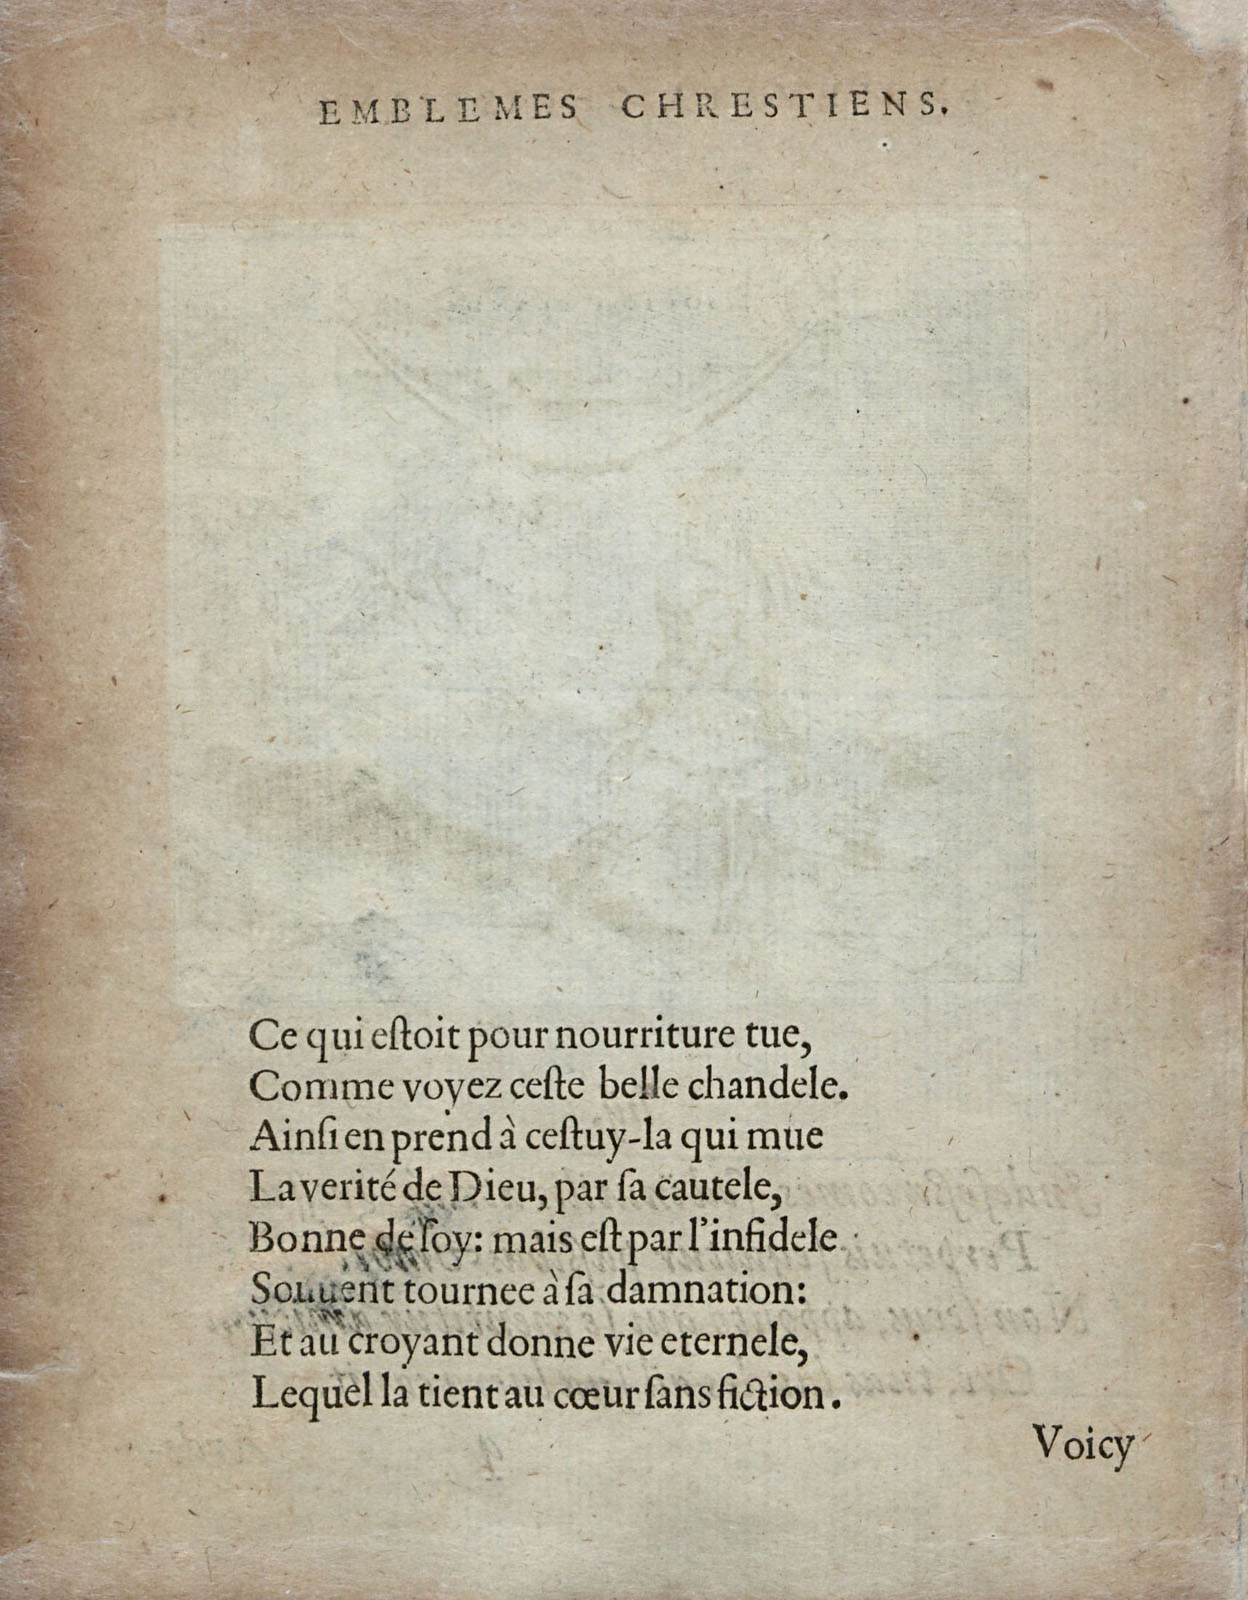 EMBLEMES CHRESTIENS.
Ce qui eſtoit pour nourriture tue,
Comme voyez ceſte belle chandele.
Ainſi en prend à ceſtuy-la qui mue
La verité de Dieu, par ſa cautele,
Bonne de ſoy: mais eſt par l'infidele
Souuent tournee à ſa damnation:
Et au croyant donne vie eternele,
Lequel la tient au cœur ſans fiction.
Voicy